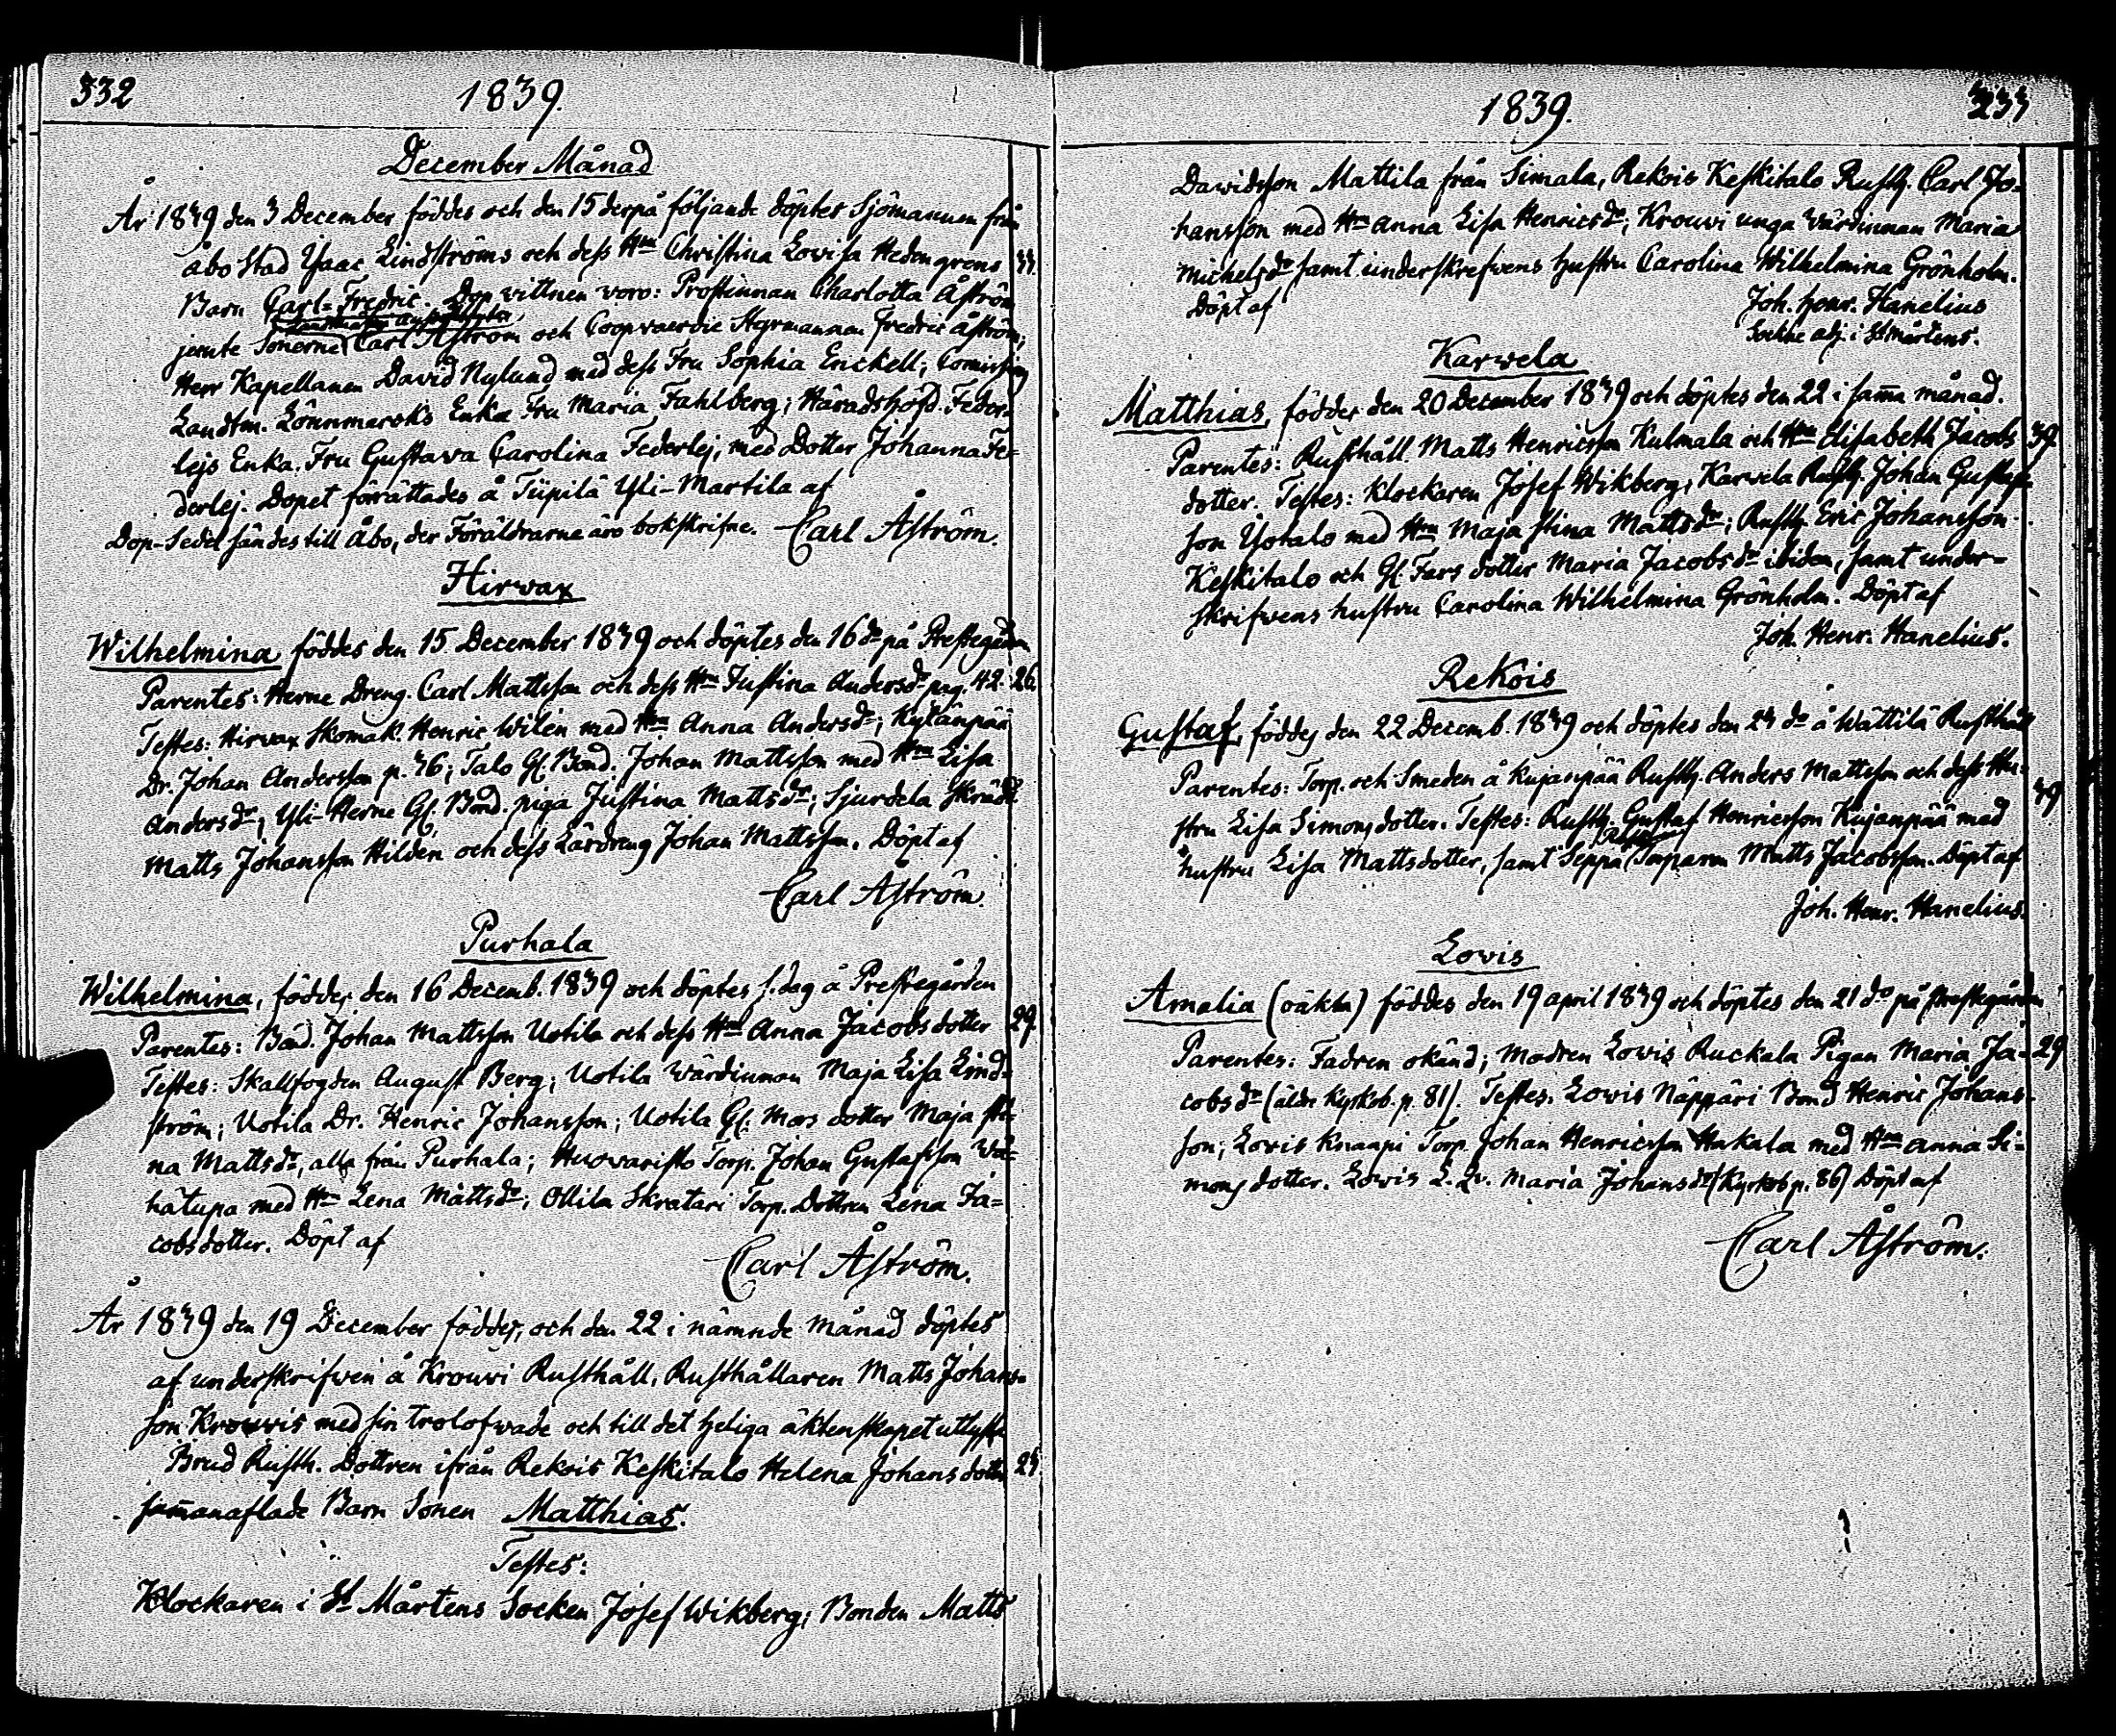 332
1839.
December Månad
År 1839 den 3 December föddes och den 15 derpå följande döptes Sjömannen från
Åbo Stad Isaac Lindströms och dess Hru Christina Lovisa Hedengrens 33.
Barn Carl-Fredric. Dop vittnen voro: Prostinnan Charlotta Åström
jemte Sönerne Carl Åström och Coopvaerdie Styrmannen Fredric Åström;
Herr Kapellanen David Nylund med dess Fru Sophia Enckell; Comissions
Landtm. Lönnmarcks Enka Fru Maria Fahlberg; Häradshöfd. Feder-
lejs Enka. Fru Gustava Carolina Federlej, med Dotter Johanna Fe-
derlej. Dopet förrättades å Tiipilä Yli-Martila af
Dop-Sedel sändes till Åbo, der Föräldrarne äro bokskrifne. Carl Åström.
Hirvax
Wilhelmina, föddes den 15 December 1839 och döptes den 16 do på Prestegården
Parentes: Herne Dreng. Carl Mattsson och dess Hru Justina Andersdr pag. 42. 26.
Testes: Hirvax Skomak. Henric Wilén med Hru Anna Andersdr; Kylänpää
Dr. Johan Andersson p. 36; Talo Gl. Bond. Johan Mattsson med Hru Lisa
Andersdr; Yli-Herne Gl. Bond. piga Justina Mattsdr; Sjurdela Skrädd.
Matts Johansson Hildén och dess Lärdreng Johan Mattsson. Döpt af
Carl Åström.
Purhala
Wilhelmina, föddes den 16 Decemb. 1839 och döptes s. dag å Prestegården
Parentes: Bond. Johan Mattsson Uotila och dess Hru Anna Jacobsdotter 29.
Testes: Skallfogden August Berg; Uotila Wärdinnan Maja Lisa Lind-
ström; Uotila Dr. Henric Johansson; Uotila Gl: Mors dotter Maja Sti-
na Mattsdr, alla från Purhala; Huovaristo Torp. Johan Gustafsson Vä-
hätupa med Hru Lena Mattsdr; Ollila Skratari Torp. Dottren Lena Ja-
cobsdotter. Döpt af
Carl Åström.
År 1839 den 19 December föddes, och den 22 i nämnde Månad döptes
af underskrifwen å Krouwi Rusthåll, Rusthållaren Matts Johans-
son Krouwis med sin trolofwade och till det heliga äktenskapet utlyste
Brud Rusth. Dottren ifrån Rekois Keskitalo Helena Johansdotter 23.
sammanaflade Barn Sonen Matthias.
Testes:
Klockaren i St Mårtens Socken Josef Wikberg; Bonden Matts
1839.
333
Davidsson Mattila från Simala, Rekois Keskitalo Rusth. Carl Jo-
hansson med Hru Anna Lisa Henricsdr; Krouwi unga Värdinnan Maria
Michelsdr samt underskrefvens hustru Carolina Wilhelmina Grönholm.
Döpt af
Joh. Henr. Hanelius
Sockne adj. i St Mårtens.
Karwela
Matthias, föddes den 20 December 1839 och döptes den 22 i samma månad.
Parentes: Rusthåll. Matts Henricsson Kulmala och Hru Elisabeth Jacobs 39.
dotter. Testes: Klockaren Josef Wikberg; Karwela Rusth. Johan Gustafs-
son Yotalo med Hru Maja Stina Mattsdr; Rusth. Eric Johansson
Keskitalo och Gl. Fars dotter Maria Jacobsdr ibidem, samt under-
skrifvens hustru Carolina Wilhelmina Grönholm. Döpt af
Joh. Henr. Hanelius.
Rekois
Gustaf, föddes den 22 Decemb. 1839 och döptes den 23 do å Wättilä Rusthåll
Parentes: Torp. och Smeden å Kujanpää Rusth. Anders Mattsson och dess Hu-
stru Lisa Simonsdotter. Testes: Rusth. Gustaf Henricsson Kujanpää med 39
hustru Lisa Mattsdotter, samt Seppä Torparen Matts Jacobsson. Döpt af
Joh. Henr. Hanelius.
Lovis
Amalia (oäkta) föddes den 19 april 1839 och döptes den 21 do på Prestegården
Parentes: Fadren okänd; Modren Lovis Ruckala Pigan Maria Ja- 29
cobsdr (äldre Kyrkob. p. 81). Testes: Lovis Näppäri Bond Henric Johans-
son; Lovis Knaapi Torp. Johan Henricsson Hakala med Hru Anna Si-
monsdotter. Lovis L. Qv. Maria Johansdr (Kyrkob p. 86) Döpt af
Carl Åström.